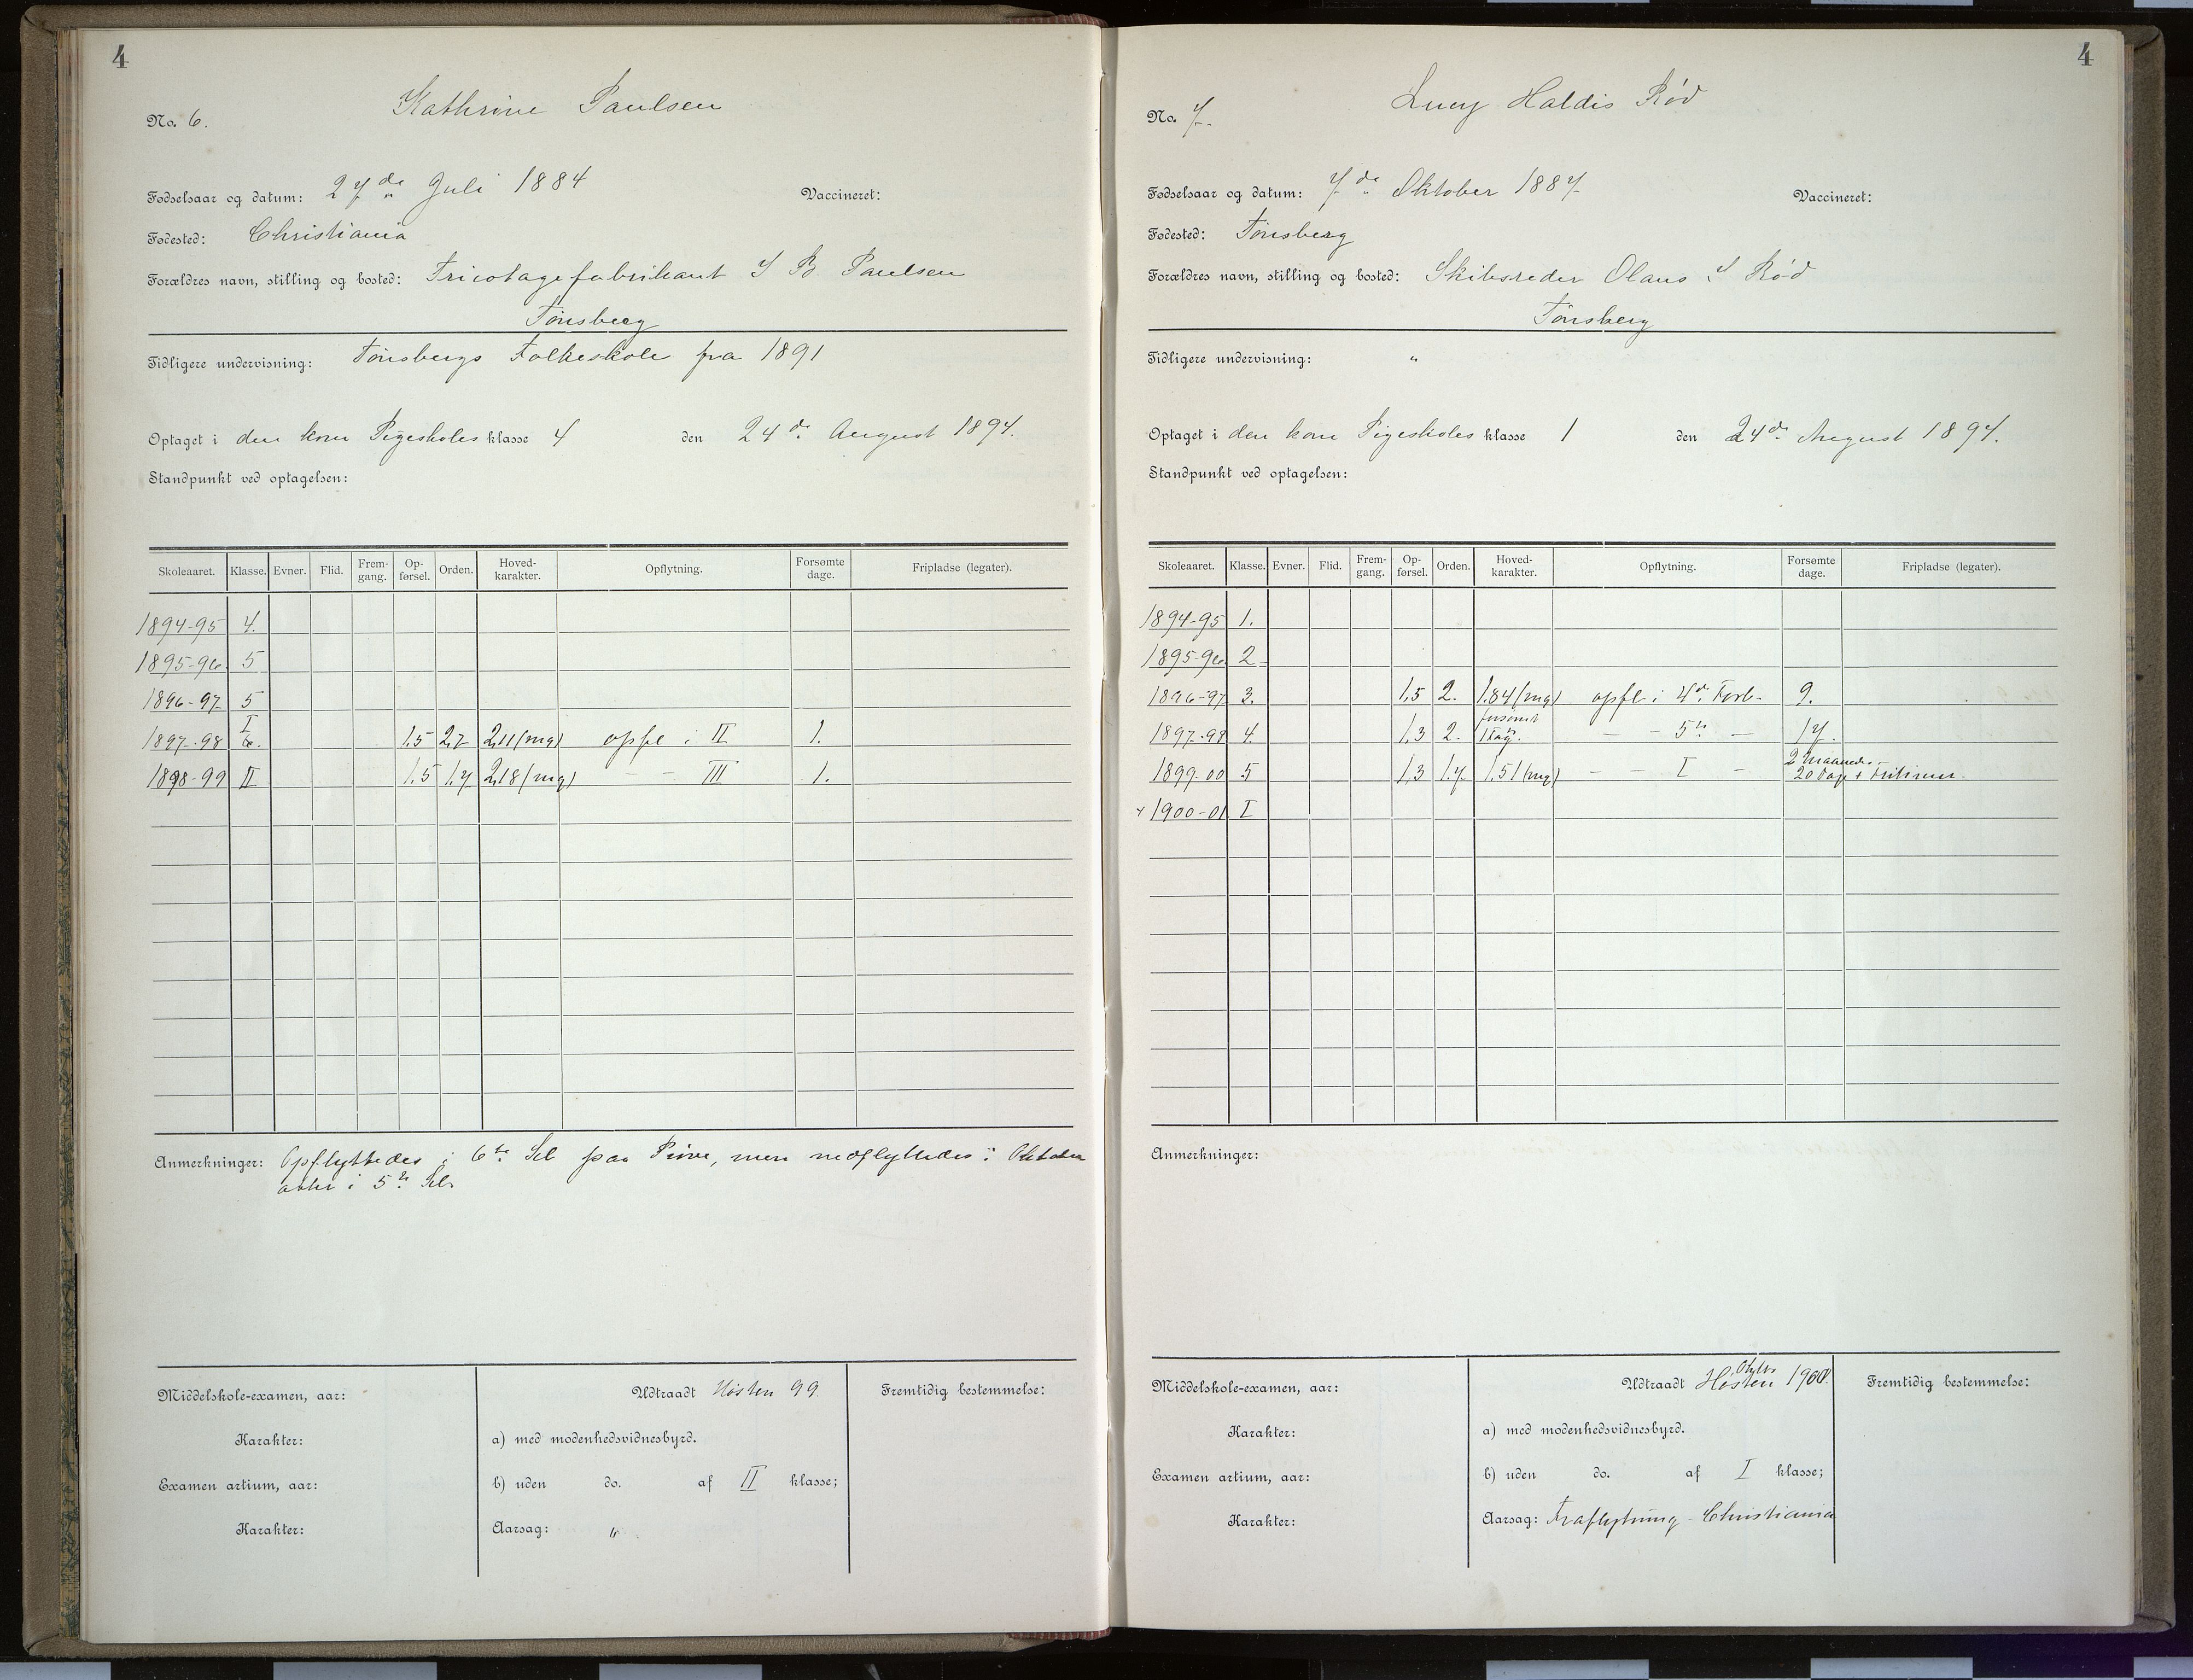 4
Kathrine Paulsen
No. 6.
Fødselsaar og datum: 27de Juli 1884 Vaccineret:
Fødested: Christiania
Forældres navn, stilling og bosted: Tricotagefabrikant I B Paulsen
Tönsberg
Tidligere undervisning: Tönsbergs Folkeskole fra 1891
Optaget i den kom Pigeskoles klasse 4 den 24de August 1894.
Standpunkt ved optagelsen:
Skoleaaret. Klasse. Evner. Flid. Frem-gang. Op-førsel. Orden. Hoved-karakter. Opflytning. Forsømte dage. Fripladse (legater).
1894-95 4.
1895-96 5
1896-97 5
1897-98 I 6. 1.5 2,7 2,11 (mg) opfl i II 1.
1898-99 II 1.5 1.7 2,18 (mg) — — III 1.
Anmerkninger: Opflyttedes i 6te Kl paa Pröve, men nedflyttedes i Oktober
atter i 5te Kl.
Middelskole-examen, aar: Udtraadt Hösten 99. Fremtidig bestemmelse:
Karakter: a) med modenhedsvidnesbyrd.
Examen artium, aar: b) uden do. af II klasse;
Karakter: Aarsag: "
4
Lucy Haldis Röd
No. 7.
Fødselsaar og datum: 7de Oktober 1887 Vaccineret:
Fødested: Tönsberg
Forældres navn, stilling og bosted: Skibsreder Olaus I Röd
Tönsberg
Tidligere undervisning: "
Optaget i den kom Pigeskoles klasse 1 den 24de August 1894.
Standpunkt ved optagelsen:
Skoleaaret. Klasse. Evner. Flid. Frem-gang. Op-førsel. Orden. Hoved-karakter. Opflytning. Forsømte dage. Fripladse (legater).
1894-95 1.
1895-96 2
1896-97 3. 1,5 2. 1.84 (mg) opfl i 4de Forb. 9.
1897-98 4. 1,3 2. — — 5te — 17.
1899-00 5 1,3 1.7 1.51 (mg) — — I — 2 maaneder 20 Dage + Fritimer
1900-01 I
Anmerkninger:
Middelskole-examen, aar: Udtraadt Hösten Oktbr 1900. Fremtidig bestemmelse:
Karakter: a) med modenhedsvidnesbyrd.
Examen artium, aar: b) uden do. af I klasse;
Karakter: Aarsag: Fraflytning - Christiania